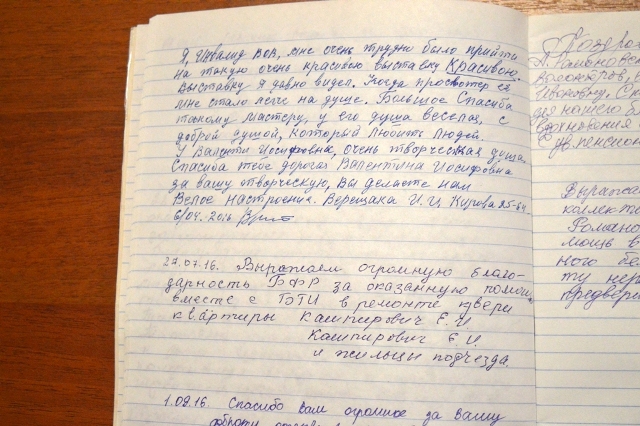 Я, Инвалид ВОВ, мне очень трудно было прийти
на такую очень красивою выставку Красивою.
Выставку я давно видел. Когда просмотрел её
мне стало легче на душе. Большое Спасибо
такому мастеру, у его душа веселая, с
доброй душой, который любить людей.
У Валенти Иосифовна, очень творческая душа.
Спасиба тебе дорогая Валентина Иосифовна
за вашу творческую, Вы делаете нам
Велое настроение. Верещака И.Ц Кирова 25-64
6/04-2016
27.07.16. Выражаем огромную благо-
дарность БФР за оказанную помощь
вместе с ТОТИ в ремонте двери
квартиры Кашпирович Е.И.
Кашпирович Е.И.
и жильцы подъезда.
1.09.16. Спасибо Вам огромное за Вашу
Поздро
для нашего
вдохновения
пенсион
Выража
коллект
Романо
мощь в
ного бе
ту нер
предвер